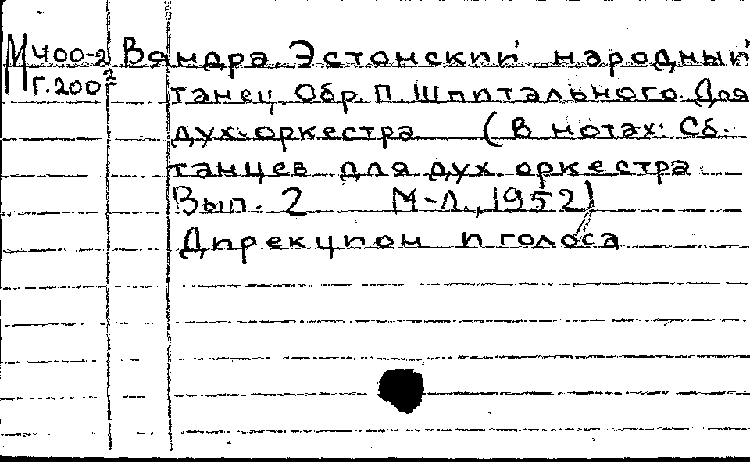 М400-2 Вяндра. Эстонский народный
Г.200² танец. Обр. П. Шпитального. Для
дух. оркестра (В нотах: Сб.
танцев для дух. оркестра.
Вып. 2 М-Л., 1952)
Дирекцион и голоса